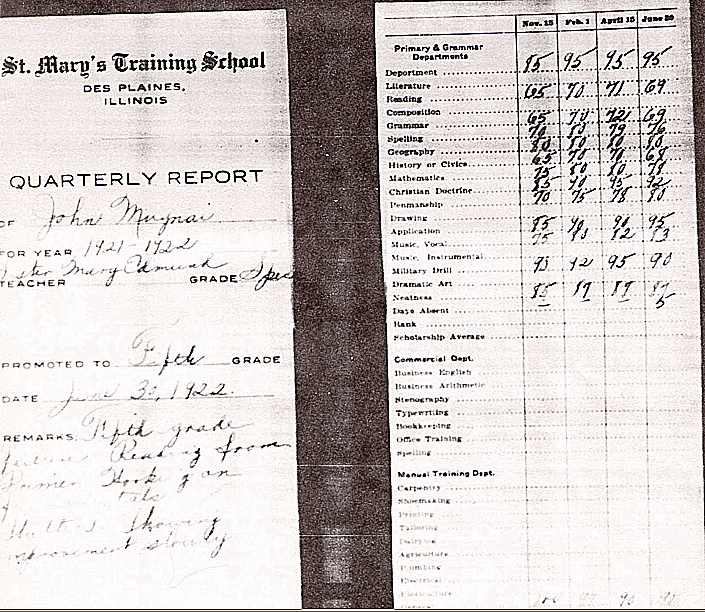 St. Mary's Training School
DES PLAINES,
ILLINOIS
QUARTERLY REPORT
OF John Mugnai
FOR YEAR 1921-1922
Sister Mary Edmund
TEACHER GRADE Spec
PROMOTED TO Fifth GRADE
DATE June 30, 1922.
REMARKS Fifth grade
Reading from
on
Showing
improvement slowly
Nov. 15 Feb. 1 April 15 June 20
Primary & Grammar
Departments
Deportment 85 95 95 95
Literature
Reading 65 70 71 69
Composition
Grammar 65 70 72 69
Spelling 70 80 79 76
Geography 80 80 80 80
History or Civics 65 70 70
Mathematics 75 80 80 78
Christian Doctrine 85 90 95 92
Penmanship 70 75 78 80
Drawing
Application 85 90 90 95
Music, Vocal 75 83 82 83
Music, Instrumental
Military Drill 93 92 95 90
Dramatic Art
Neatness 85 87 87 87
Days Absent 5
Rank
Scholarship Average
Commercial Dept.
Business English
Business Arithmetic
Stenography
Typewriting
Bookkeeping
Office Training
Spelling
Manual Training Dept.
Carpentry
Shoemaking
Printing
Tailoring
Dairying
Agriculture
Plumbing
Electrical
Floriculture